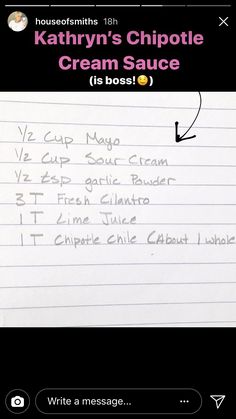 houseofsmiths 18h
Kathryn's Chipotle
Cream Sauce
(is boss!😉)
1/2 Cup Mayo
1/2 Cup Sour Cream
1/2 tsp garlic Powder
3 T Fresh Cilantro
1 T Lime Juice
1 T Chipotle Chile (About 1 whole
Write a message...